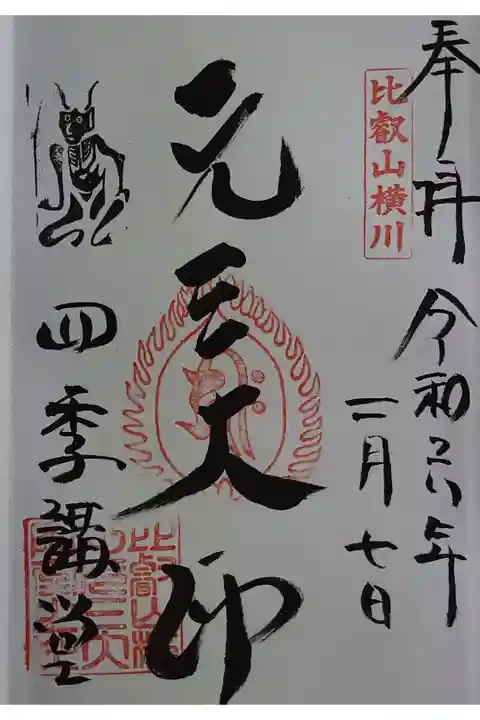 奉拝
比叡山横川
令和六年
二月七日
元三大師
四季講堂